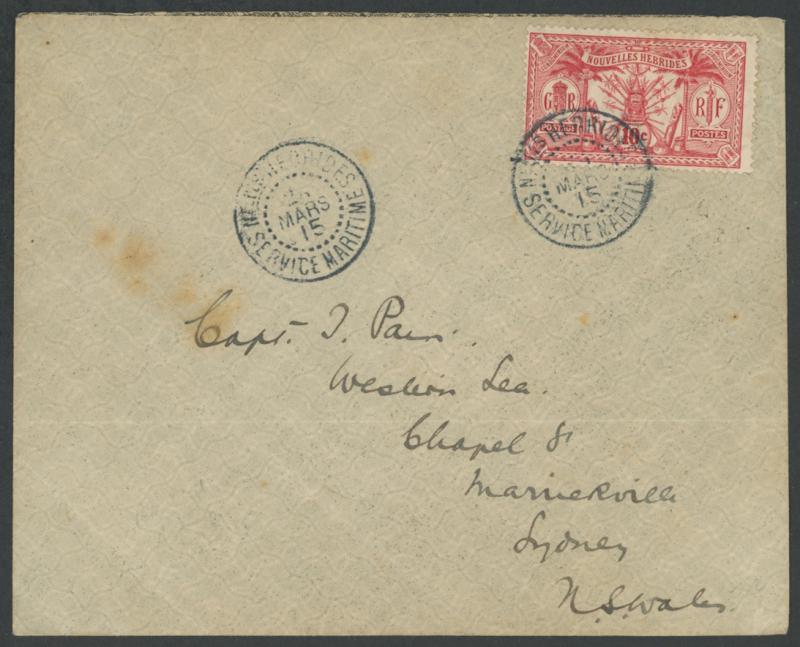 NOUVELLES HEBRIDES
G R
R F
POSTAGE
10c
POSTES
NLLES HEBRIDES
MARS
15
SERVICE MARITIME
NLLES HEBRIDES
MARS
15
SERVICE MARITIME
Capt. J. Pain.
Western Lea.
Chapel St
Marrickville
Sydney
N.S.Wales.